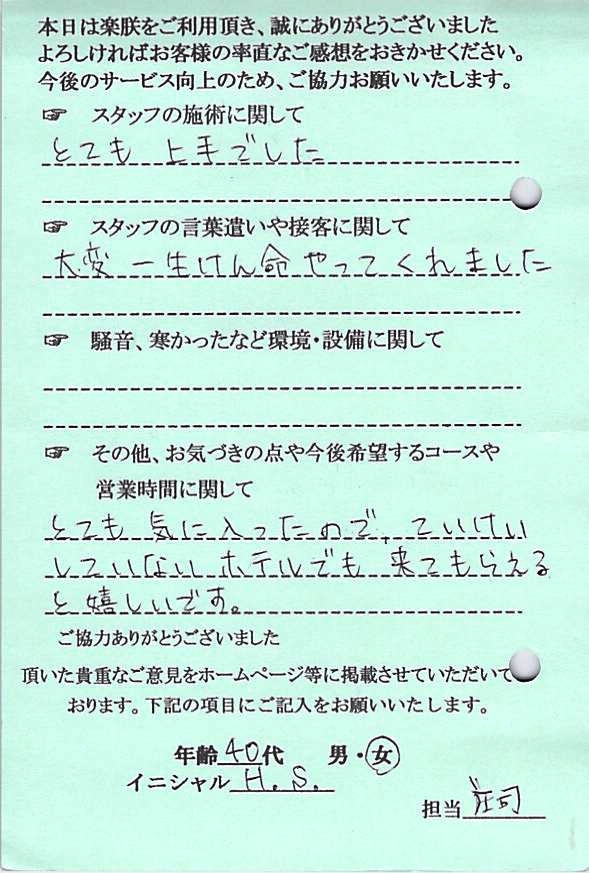 本日は楽朕をご利用頂き、誠にありがとうございました
よろしければお客様の率直なご感想をおきかせください。
今後のサービス向上のため、ご協力お願いいたします。
☞ スタッフの施術に関して
とても 上手でした
☞ スタッフの言葉遣いや接客に関して
大変 一生けん命 やってくれました
☞ 騒音、寒かったなど環境・設備に関して
☞ その他、お気づきの点や今後希望するコースや
営業時間に関して
とても 気に入ったので、ていけい
していない ホテルでも 来てもらえる
と嬉しいです。
ご協力ありがとうございました
頂いた貴重なご意見をホームページ等に掲載させていただいて
おります。下記の項目にご記入をお願いいたします。
年齢 40代 男・女
イニシャル H.S.
担当 庄司